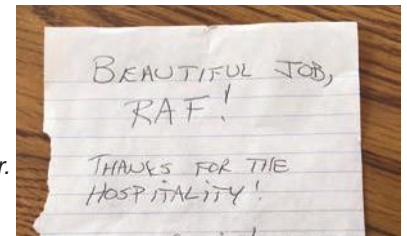 BEAUTIFUL JOB,
RAF!
THANKS FOR THE
HOSPITALITY!